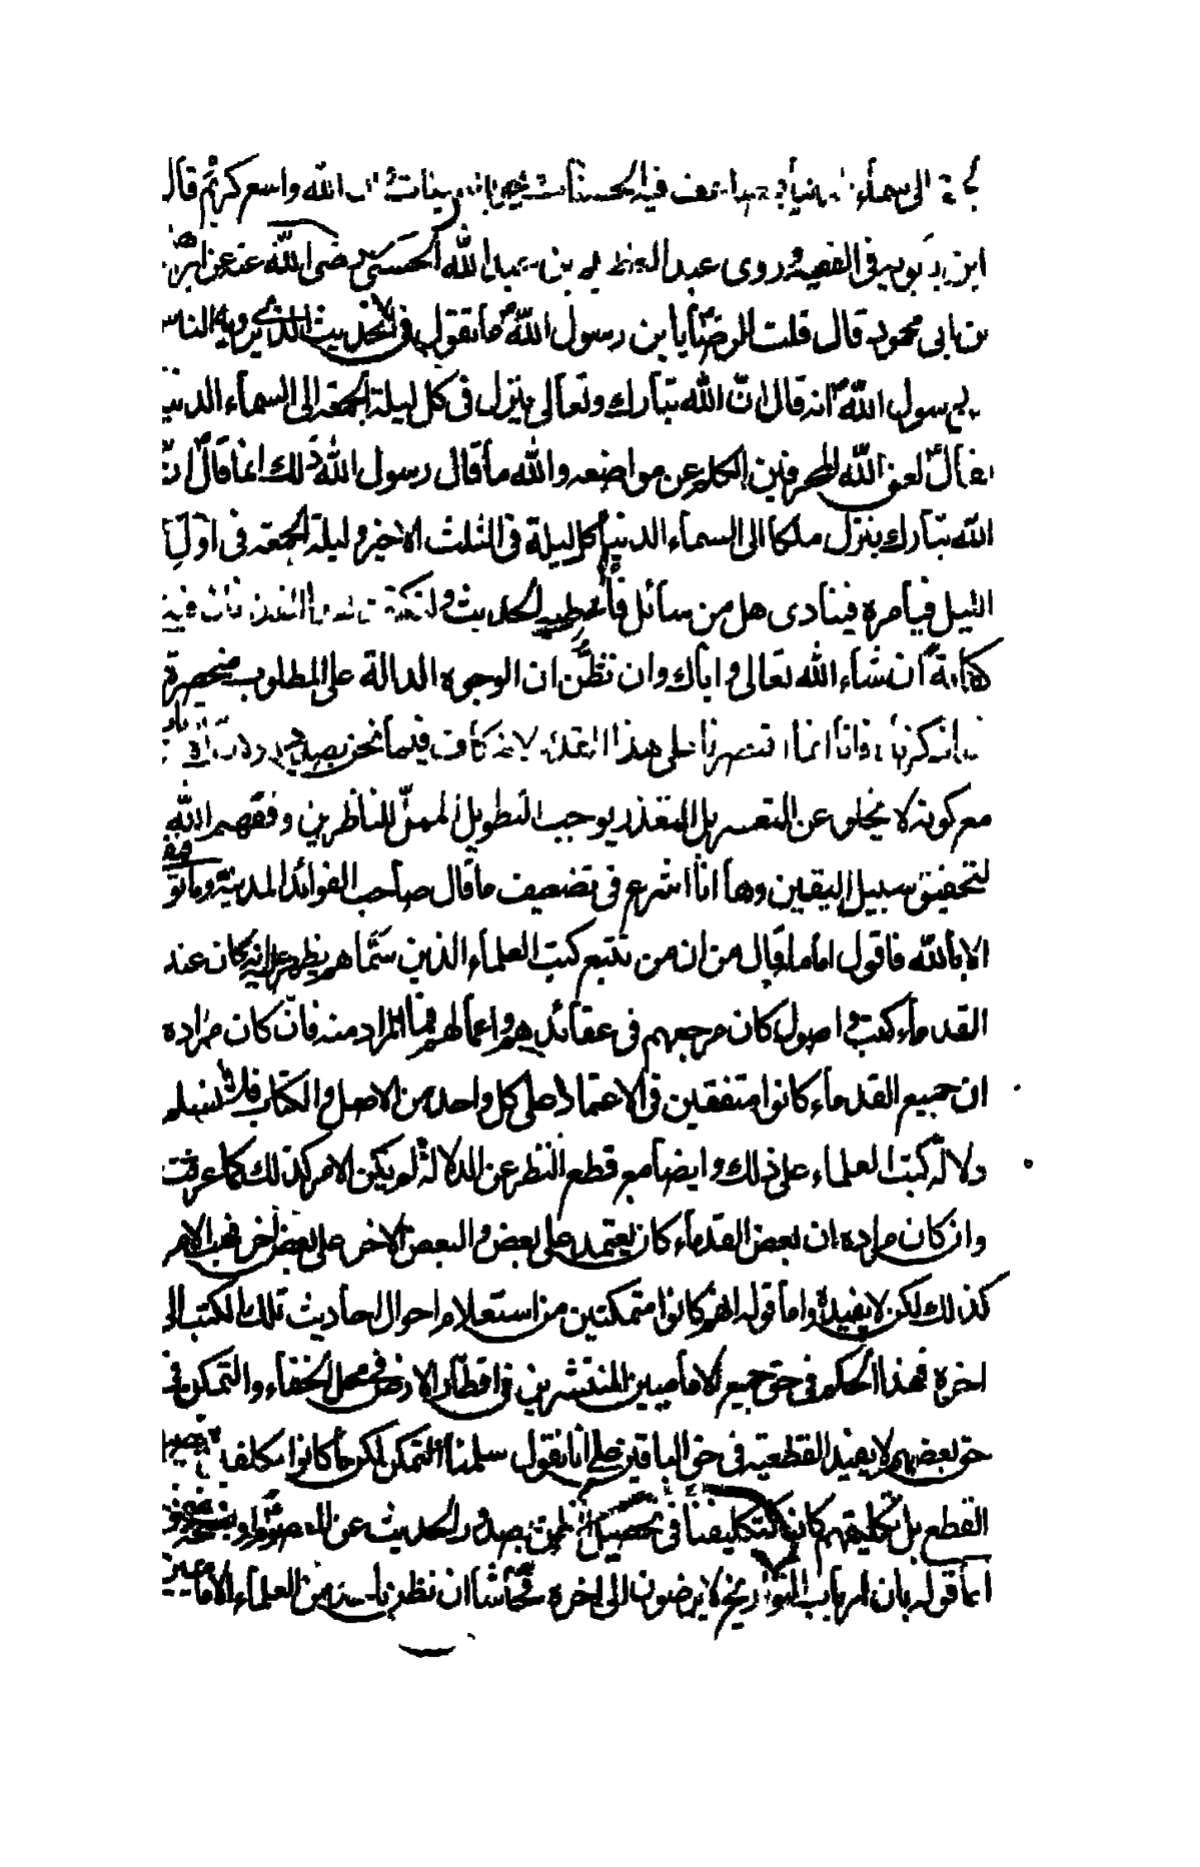 الى سماء الدنيا فيضاعف فيه الحسنات ويمحو فيه السيئات الله واسع كريم قال
ابن بابويه فى الفقيه وروى عبد العظيم بن عبد الله الحسنى رضى الله عنه عن
بن ابى محمود قال قلت للرضا يا بن رسول الله ما تقول فى الحديث الذى يرويه الناس
رسول الله انه قال ان الله تبارك وتعالى ينزل فى كل ليلة الجمعة الى السماء الدنيا
فقال لعن الله المحرفين الكلم عن مواضعه والله ما قال رسول الله ذلك انما قال ان
الله تبارك ينزل ملكا الى السماء الدنيا كل ليلة فى الثلث الاخير وليلة الجمعة فى اول
الليل فيامره فينادى هل من سائل فاعطيه الحديث
كفاية ان شاء الله تعالى واياك وان تظن ان الوجوه الدالة على المطلوب منحصرة
فانا انما اقتصرنا على هذا القدر لانه كاف فيما نحن بصدده
مع كونه لا يخلو عن التعسر بل التعذر يوجب التطويل الممل للناظرين وفقهم الله
لتحقيق سبيل اليقين وها انا اشرع فى تضعيف ما قال صاحب الفوائد المدنية وما توفيقى
الا بالله فاقول اما ما قال من ان من تتبع كتب العلماء الذين سماهم يظهر عليه انه كان عند
القدماء كتب واصول كان مرجعهم فى عقائدهم واعمالهم فما المراد منه فان كان مراده
ان جميع القدماء كانوا متفقين فى الاعتماد على كل واحد من الاصل والكتاب فلا نسلم
دلالة كتب العلماء على ذلك وايضا مع قطع النظر عن الدلالة لم يكن الامر كذلك كما عرفت
وان كان مراده ان بعض القدماء كان يعتمد على بعض والبعض الاخر على بعض اخر فالامر
كذلك لكن لا يفيده واما قوله انهم كانوا متمكنين من استعلام احوال احاديث تلك الكتب الى
اخره فهذا الحكم فى حق جميع الاماميين المنتشرين فى اقطار الارض فى محل الخفاء والتمكن فى
حق بعضهم لا يفيد القطعية فى حق الباقين على انا نقول سلمنا التمكن لكن ما كانوا مكلفين بتحصيل
القطع بل تكليفهم كان كتكليفنا فى تحصيل الظن بصدور الحديث عن
اما قوله بان ارباب التواريخ لا يرضون الى اخره فحاشا ان نظن باحد من العلماء الاماميين